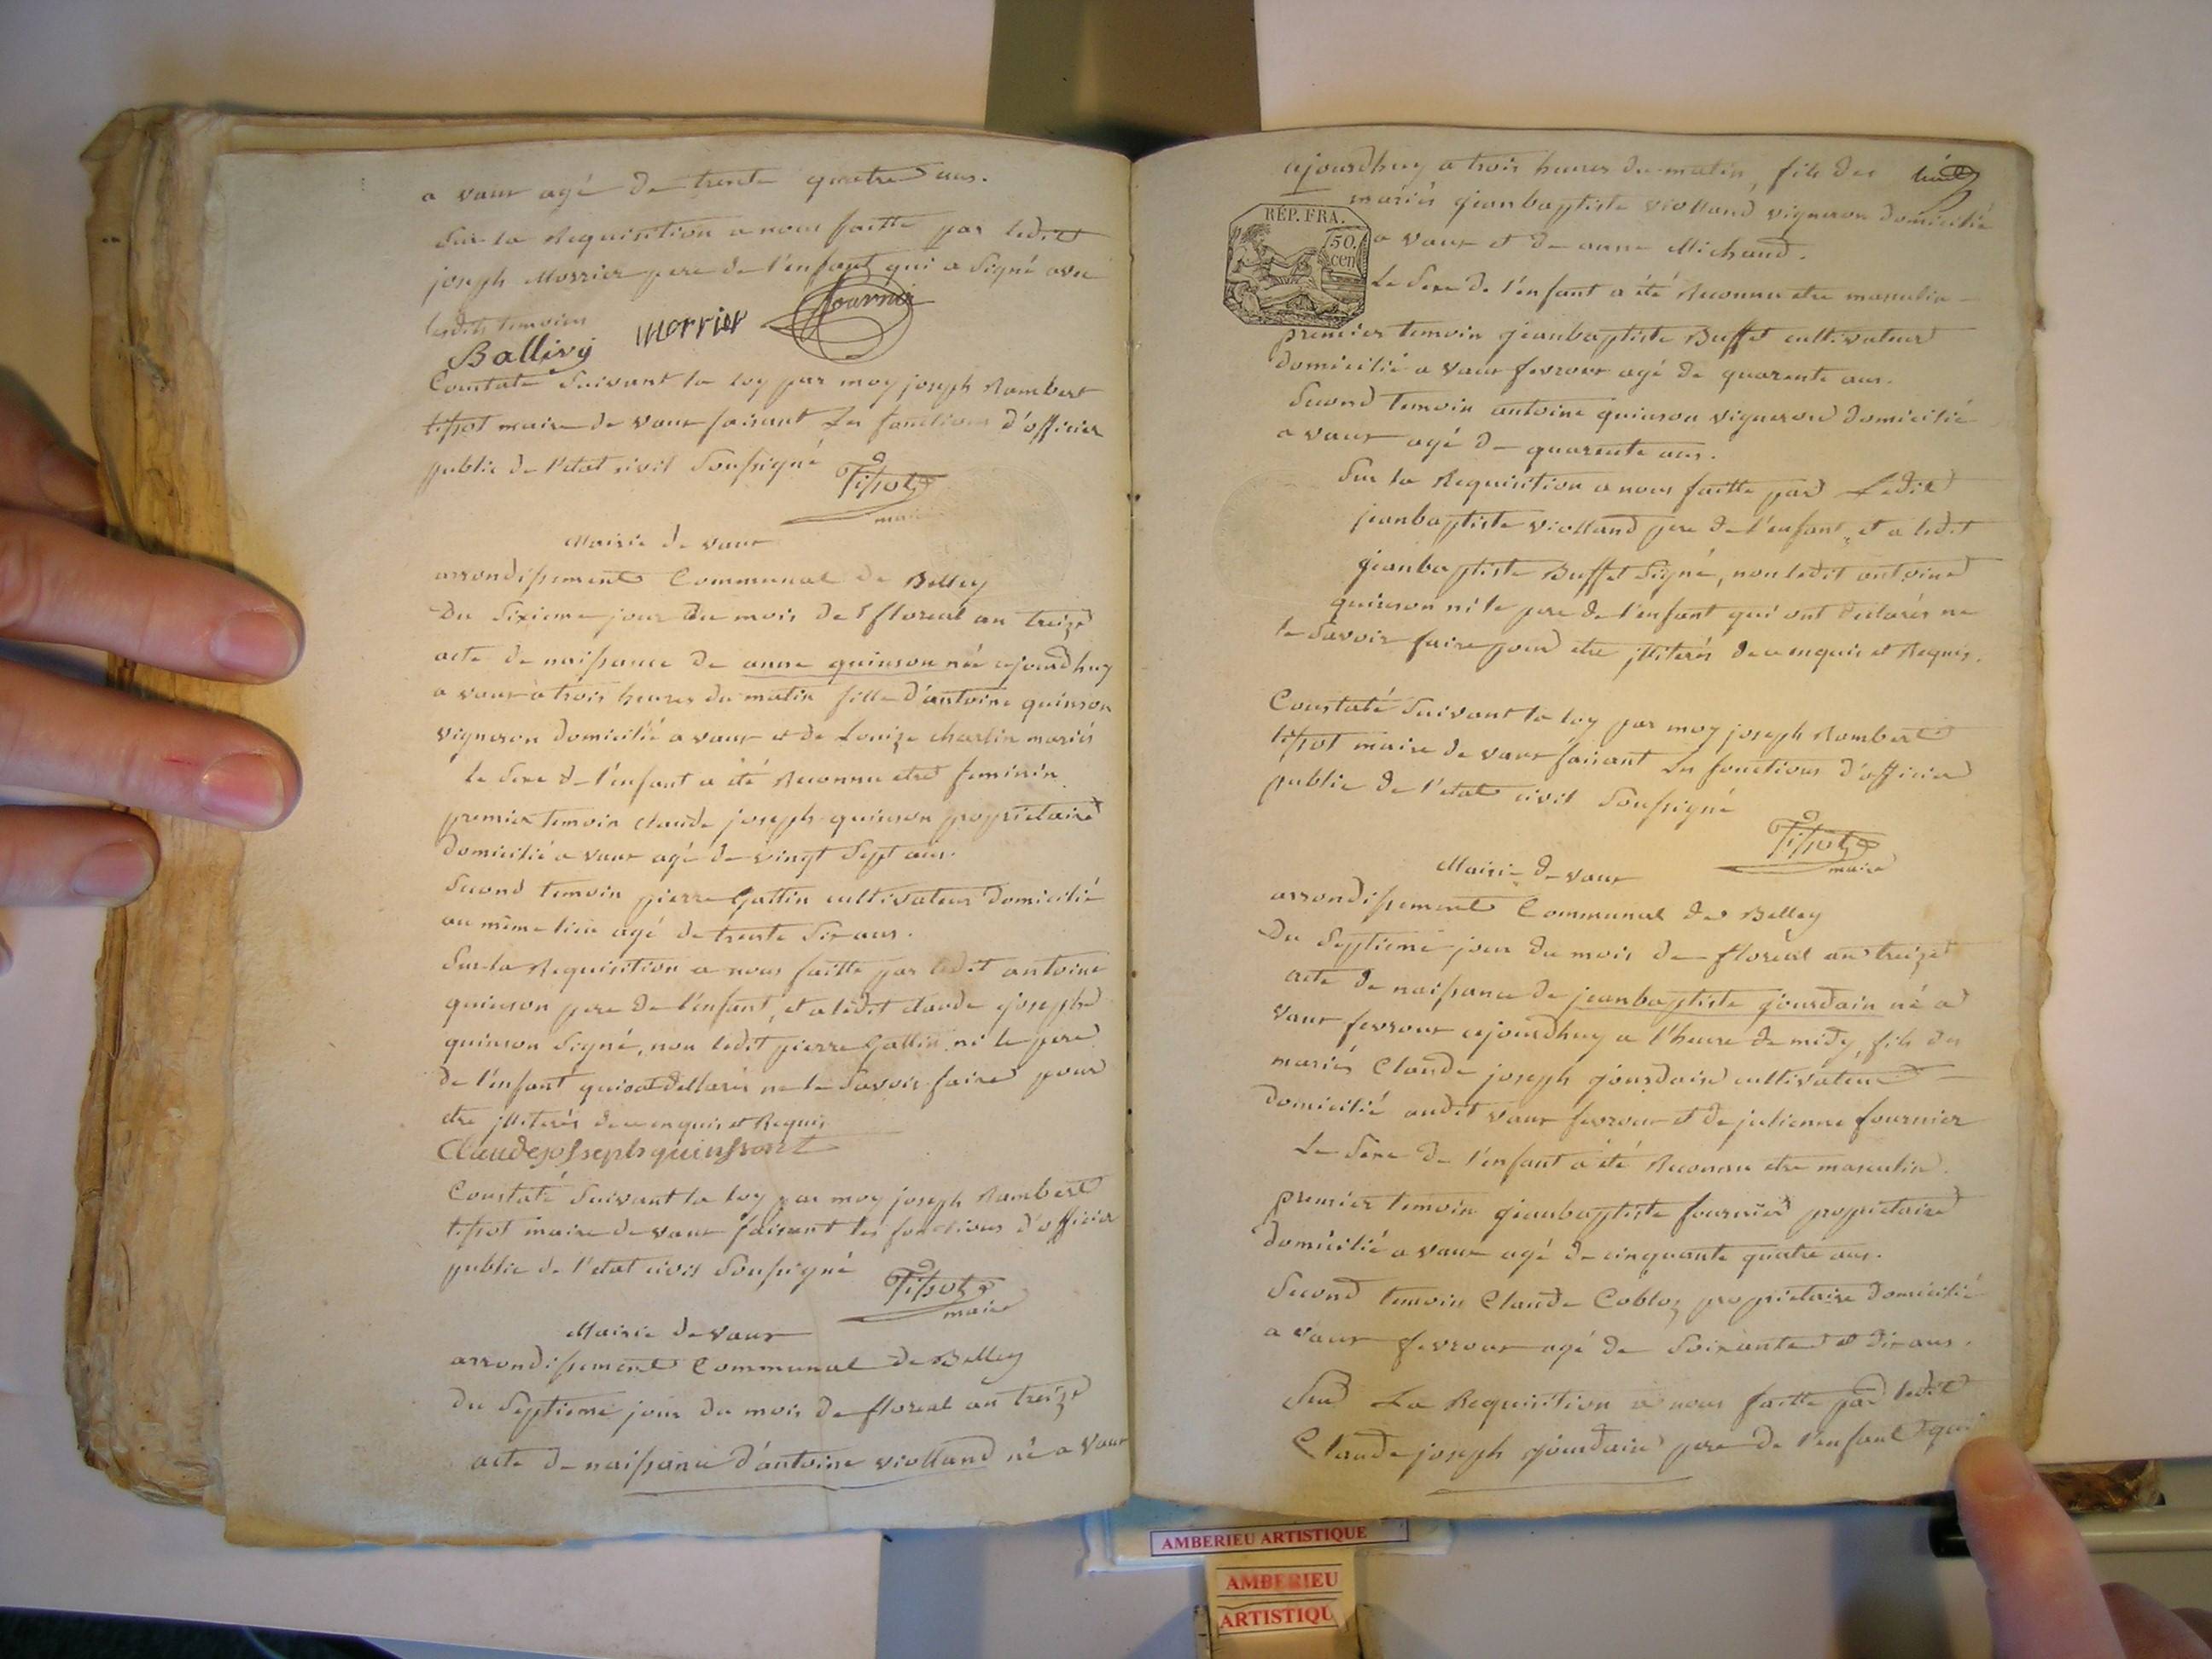 a vaux agé de trente quatre ans.
Sur la Requisition a nous faitte par ledit
joseph Morrier pere de l'enfant qui a signé avec
lesdits temoins
Ballivy morrier fournier
Constaté Suivant la loy par moy joseph Rambert
tissot maire de vaux faisant Les fonctions d'officier
public de l'etat civil Soussigné
Tissot
maire
Mairie de vaux
arrondissement Communal de Belley
Du Sixieme jour du mois de floreal an treize
acte de naissance de anne quinson née cejourdhuy
a vaux à trois heures du matin fille d'antoine quinson
vigneron domicilié a vaux et de Louize charlin mariés
le Sexe de l'enfant a été Reconnu etre feminin
premier temoin claude joseph quinson proprietaire
domicilié a vaux agé de vingt Sept ans.
Second temoin pierre Gattin cultivateur domicilié
au même lieu agé de trente Six ans.
Sur la Requisition a nous faitte par ledit antoine
quinson pere de l'enfant, et a ledit claude joseph
quinson Signé, non ledit pierre Gattin ni le pere
de l'enfant qui ont dellarés ne le Savoir faire pour
etre jlliterés de ce enquis et Requis
Claude josseph quinssont
Constaté Suivant la loy par moy joseph Rambert
tissot maire de vaux faisant les fonctions d'officier
public de l'etat civil Soussigné
Tissot
maire
Mairie de vaux
arrondissement Communal de Belley
du Septieme jour du mois de floreal an treize
acte de naissance d'antoine violland né a vaux
cejourdhuy a trois heures du matin, fils des
mariés jeanbaptiste violland vigneron domicilié
RÉP. FRA.
50.
cen
a vaux et de anne Michaud.
Le Sexe de l'enfant a été Reconnu etre masculin
premier temoin jeanbaptiste Buffet cultivateur
domicilié a vaux fevroux agé de quarente ans.
Second temoin antoine quinson vigneron domicilié
a vaux agé de quarente ans.
Sur la Requisition a nous faitte par Ledit
jeanbaptiste violland pere de l'enfant, et a ledit
jeanbaptiste Buffet Signé, non ledit antoine
quinson ni le pere de l'enfant qui ont declarés ne
le Savoir faire pour etre jlliterés de ce enquis et Requis.
Constaté Suivant la loy par moy joseph Rambert
tissot maire de vaux faisant Les fonctions d'officier
public de l'etat civil Soussigné
Tissot
maire
Mairie de vaux
arrondissement Communal de Belley
Du Septieme jour du mois de floreal an treize
acte de naissance de jeanbaptiste jourdain né a
vaux fevroux cejourdhuy a l'heure de midy, fils des
mariés Claude joseph jourdain cultivateur
domicilié audit vaux fevroux et de julienne fournier
Le Sexe de l'enfant a été Reconnu etre masculin.
premier temoin jeanbaptiste fournier proprietaire
domicilié a vaux agé de cinquante quatre ans.
Second temoin Claude Cobloz proprietaire domicilié
a vaux fevroux agé de Soixante et dix ans.
Sur La Requisition a nous faitte par ledit
Claude joseph jourdain pere de l'enfant qui
AMBERIEU ARTISTIQUE
AMBERIEU
ARTISTIQU